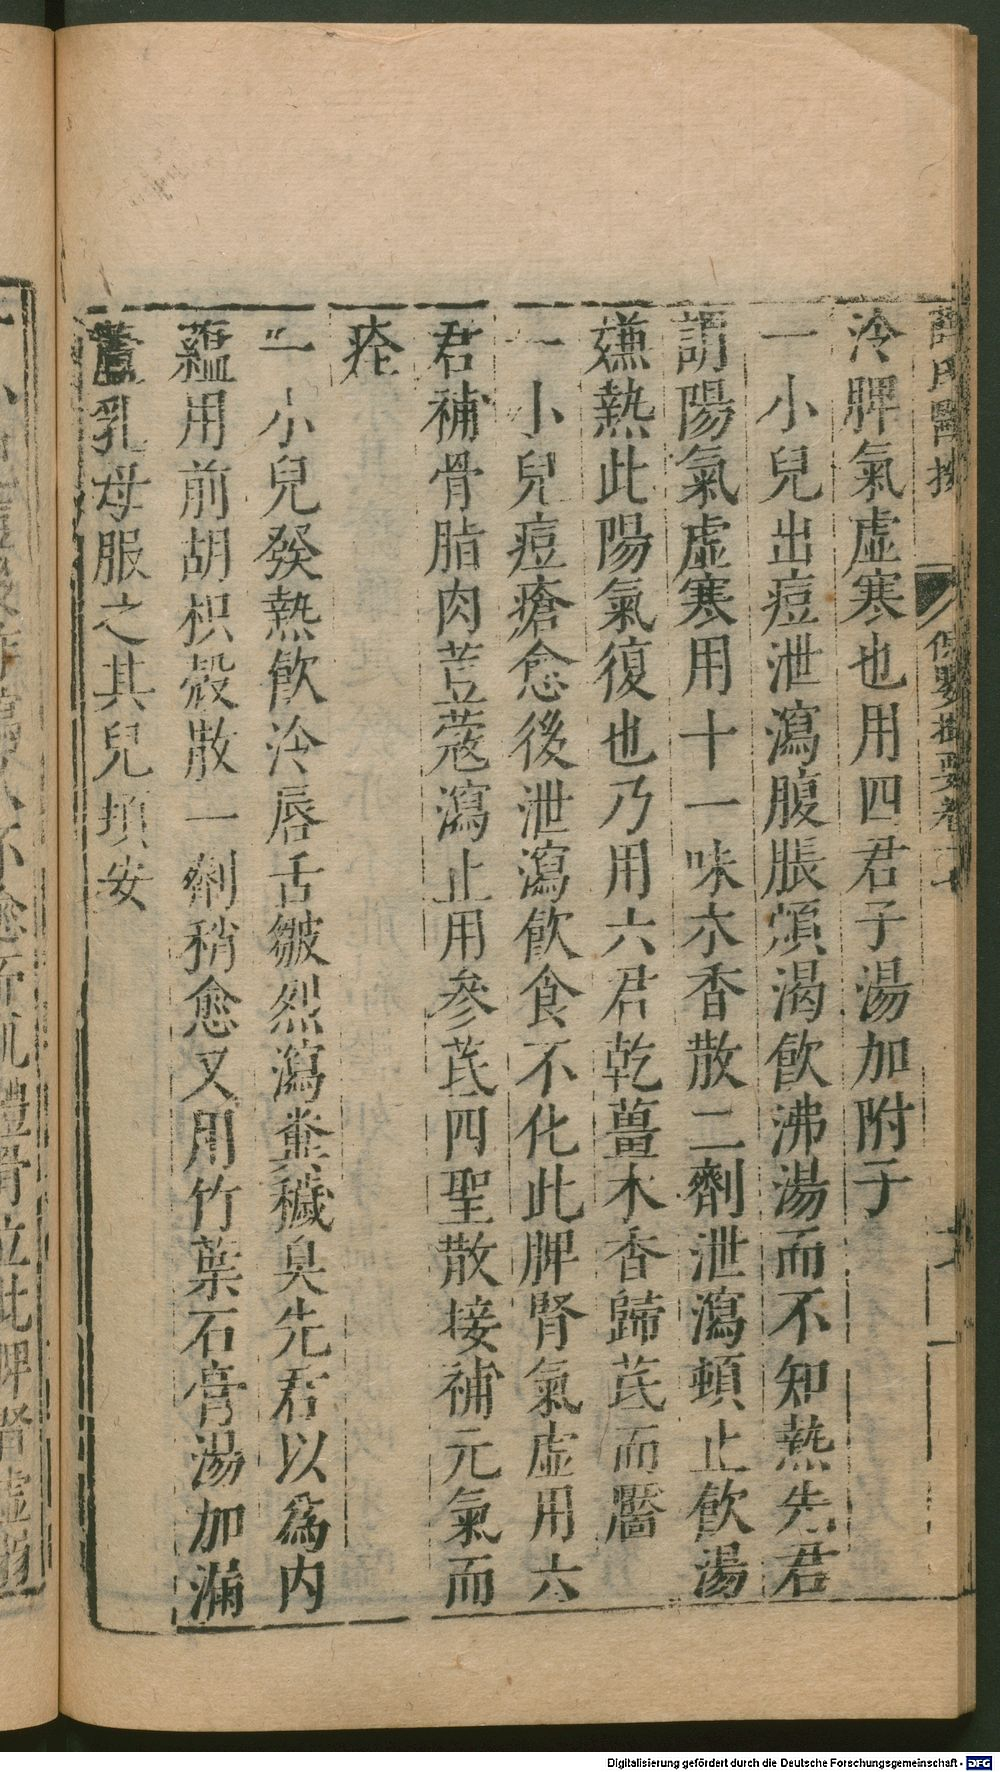 薛氏醫按 保嬰撮要卷十七
冷脾氣虛寒也用四君子湯加附子
一小兒出痘泄瀉腹脹煩渴飲沸湯而不知熱先君
謂陽氣虛寒用十一味木香散二劑泄瀉頓止飲湯
嫌熱此陽氣復也乃用六君乾薑木香歸芪而靨
一小兒痘瘡愈後泄瀉飲食不化此脾腎氣虛用六
君補骨脂肉荳蔻瀉止用參芪四聖散接補元氣而
痊
一小兒發熱飲冷唇舌皺烈瀉糞穢臭先君以為內
蘊用前胡枳殼散一劑稍愈又用竹葉石膏湯加漏
蘆乳母服之其兒頓安
Digitalisierung gefördert durch die Deutsche Forschungsgemeinschaft - DFG